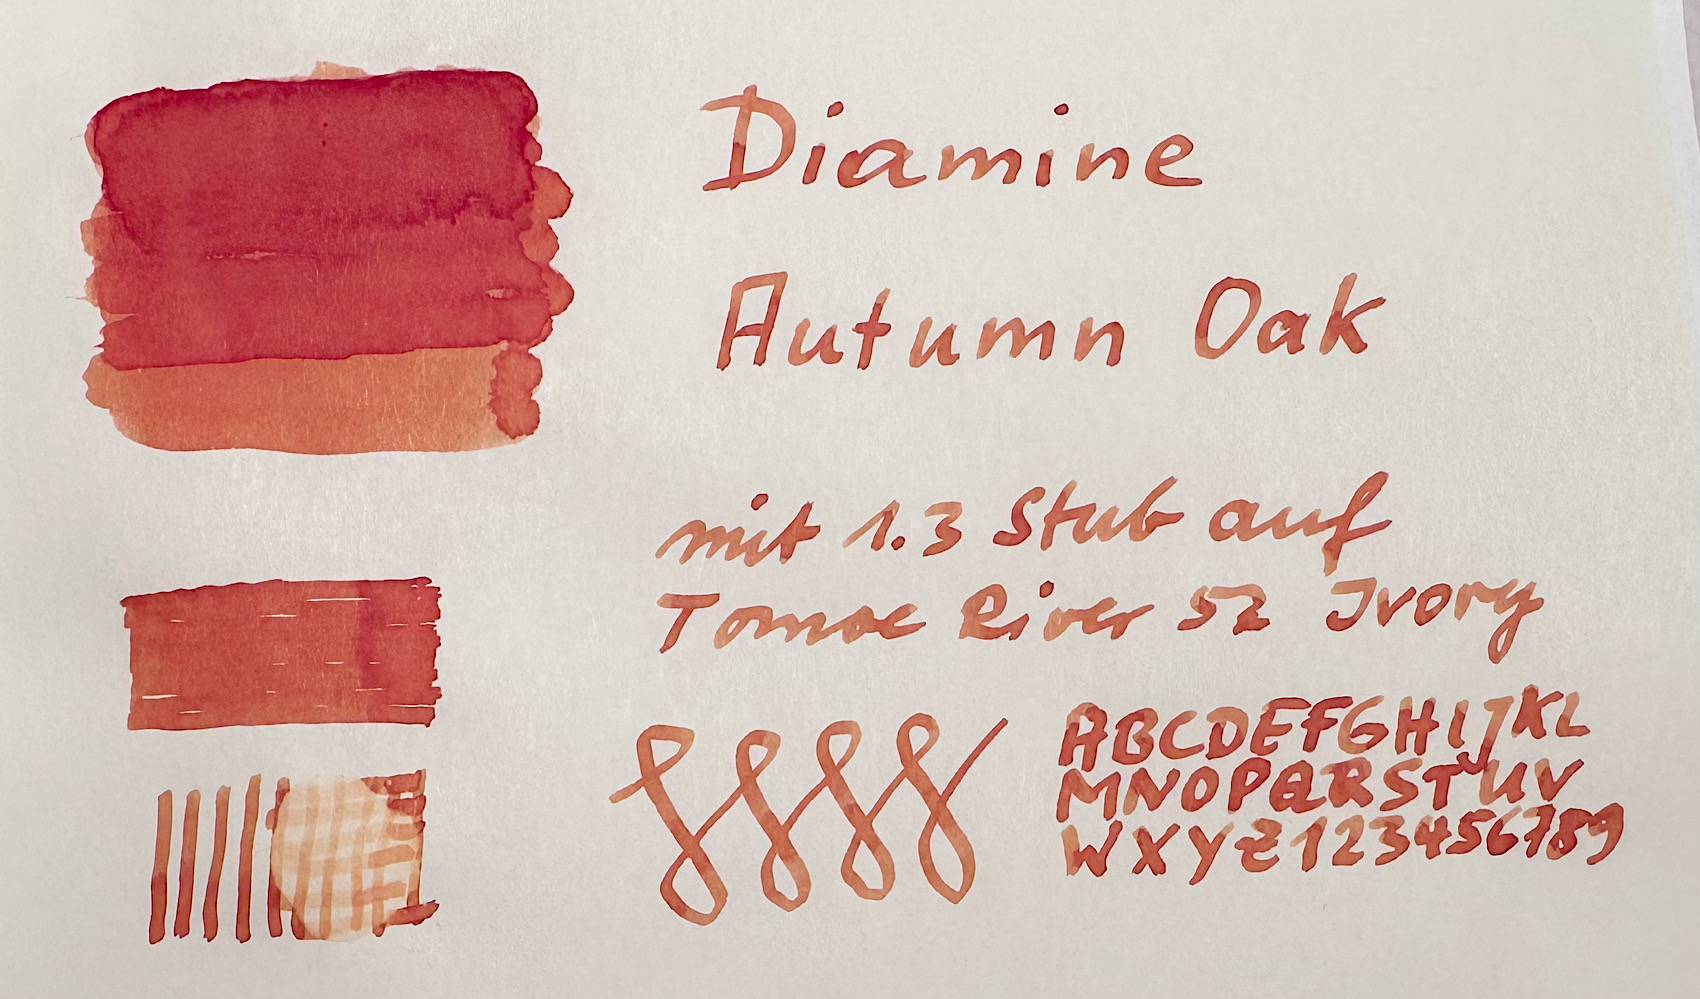 Diamine
Autumn Oak
mit 1.3 Stub auf
Tomoe River 52 Ivory
ABCDEFGHIJKL
MNOPQRSTUV
WXYZ123456789